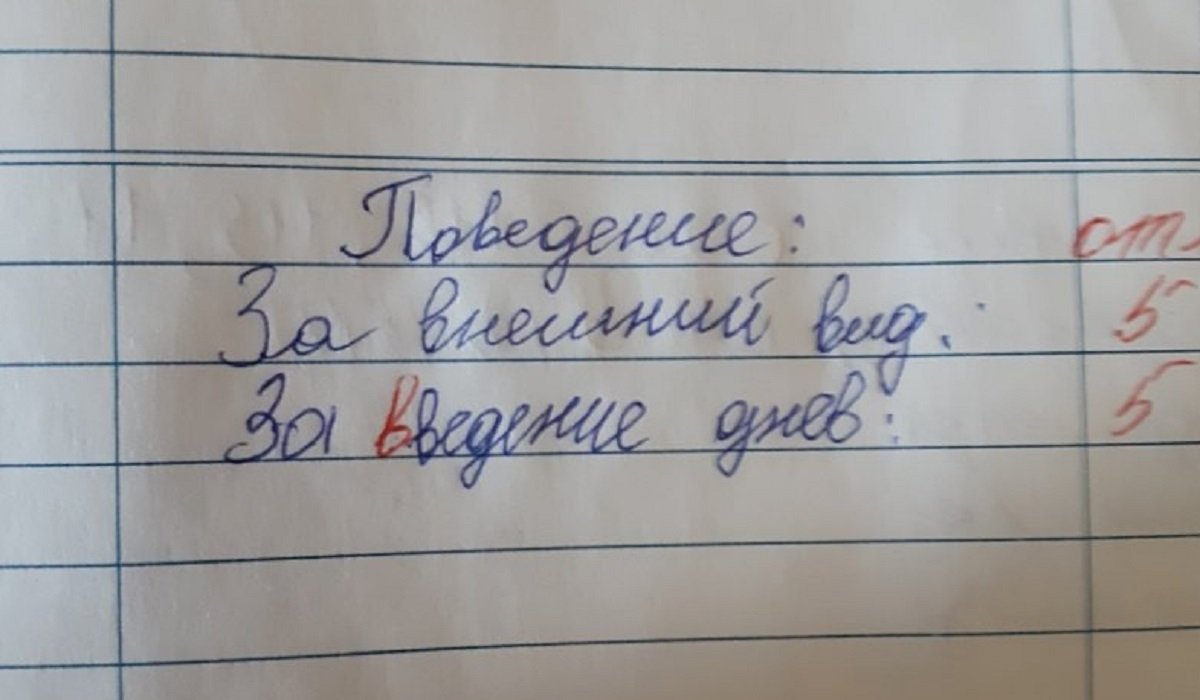 Поведение: от.
За внешний вид: 5
За введение днев: 5